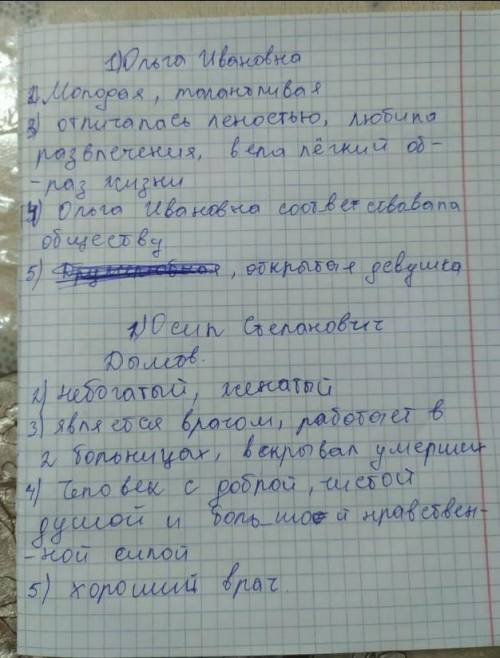 1) Ольга Ивановна
2. Молодая, талантливая
3) отличалась леностью, любила
развлечения, вела лёгкий об-
-раз жизни
4) Ольга Ивановна соответствавала
обществу
5) , открытая девушка
1) Осип Степанович
Дымов.
2) небогатый, женатый
3) является врачом, работает в
2 больницах, вскрывал умерших
4) Человек с доброй, чистой
душой и большой нравствен-
-ной силой
5.) хороший врач.